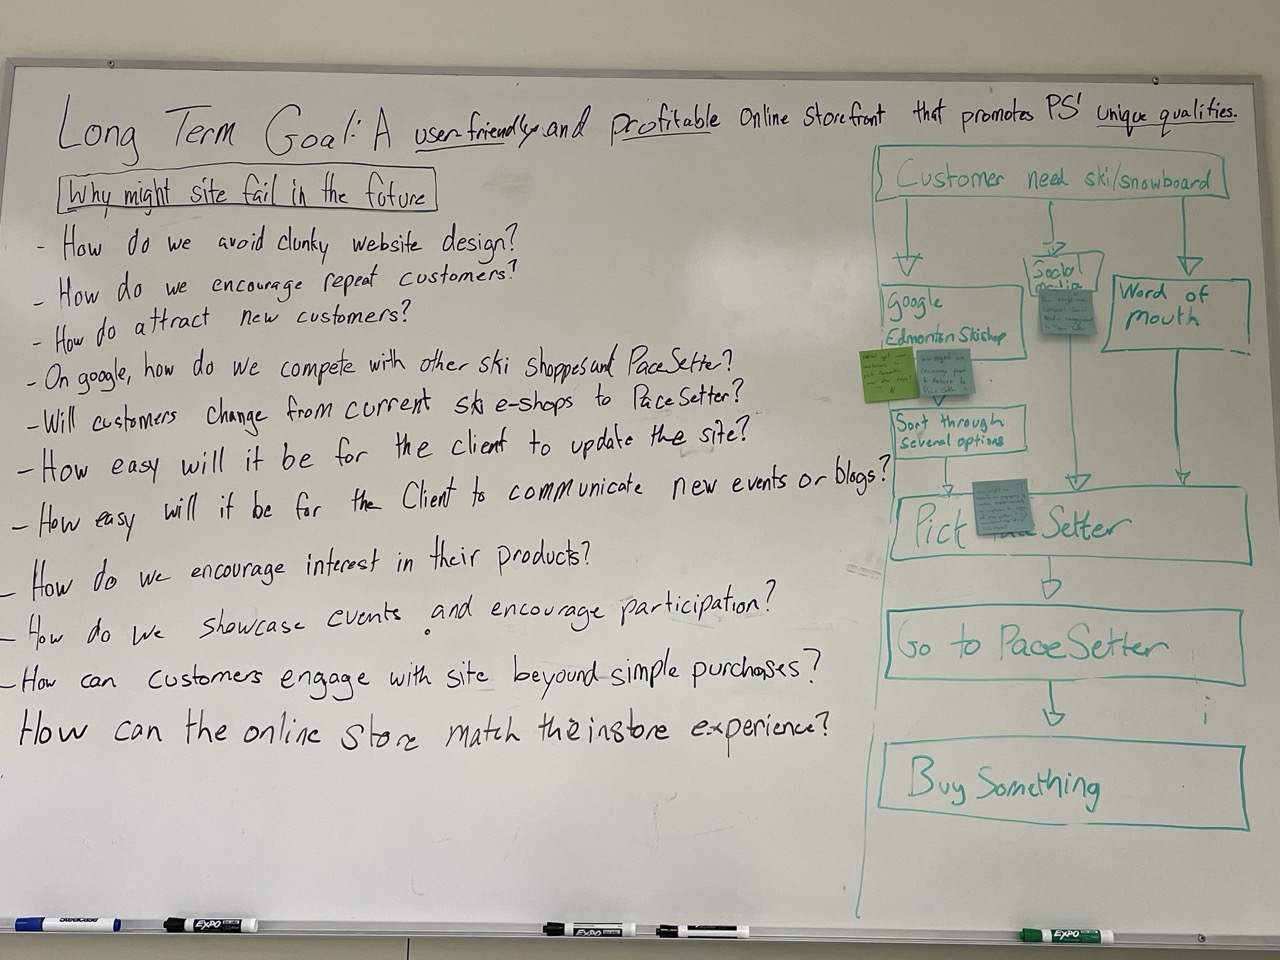 Long Term Goal: A user-friendly and profitable online storefront that promotes PS' unique qualities.
Why might site fail in the future
- How do we avoid clunky website design?
- How do we encourage repeat customers?
- How do attract new customers?
- On google, how do we compete with other ski shoppes and PaceSette?
- Will customers change from current ski e-shops to PaceSetter?
- How easy will it be for the client to update the site?
- How easy will it be for the Client to communicate new events or blogs?
- How do we encourage interest in their products?
- How do we showcase events and encourage participation?
- How can customers engage with site beyound simple purchases?
How can the online store match the instore experience?
Customer need ski/snowboard
Google
Edmonton Skishop
Social
media
Word of
mouth
Sort through
several options
Pick Setter
Go to PaceSetter
Buy Something
EXPO
EXPO
EXPO